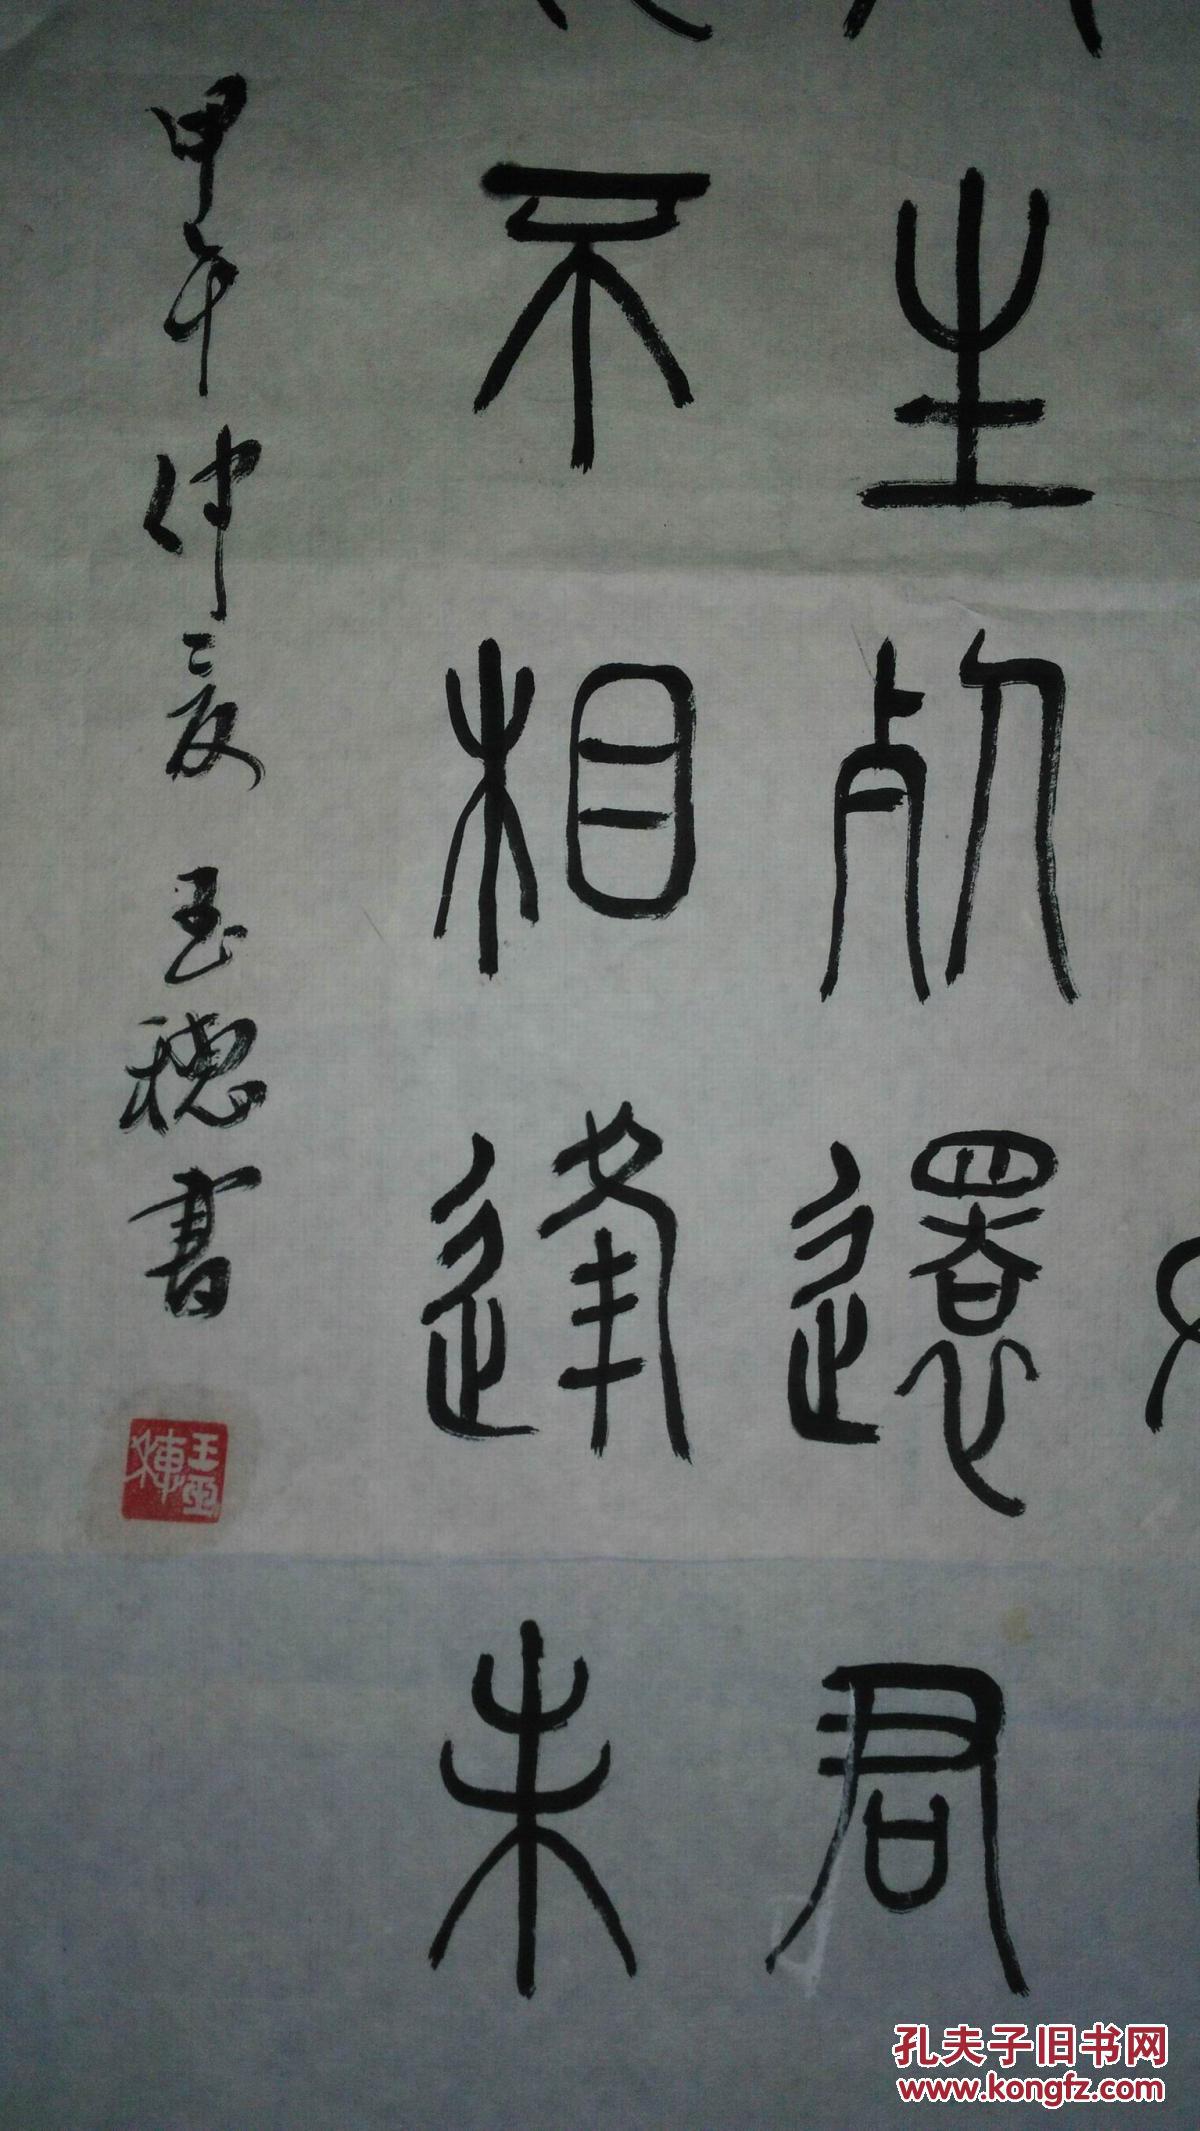 生死還君
不相逢未
甲午仲夏 玉穗書
孔夫子旧书网
www.kongfz.com